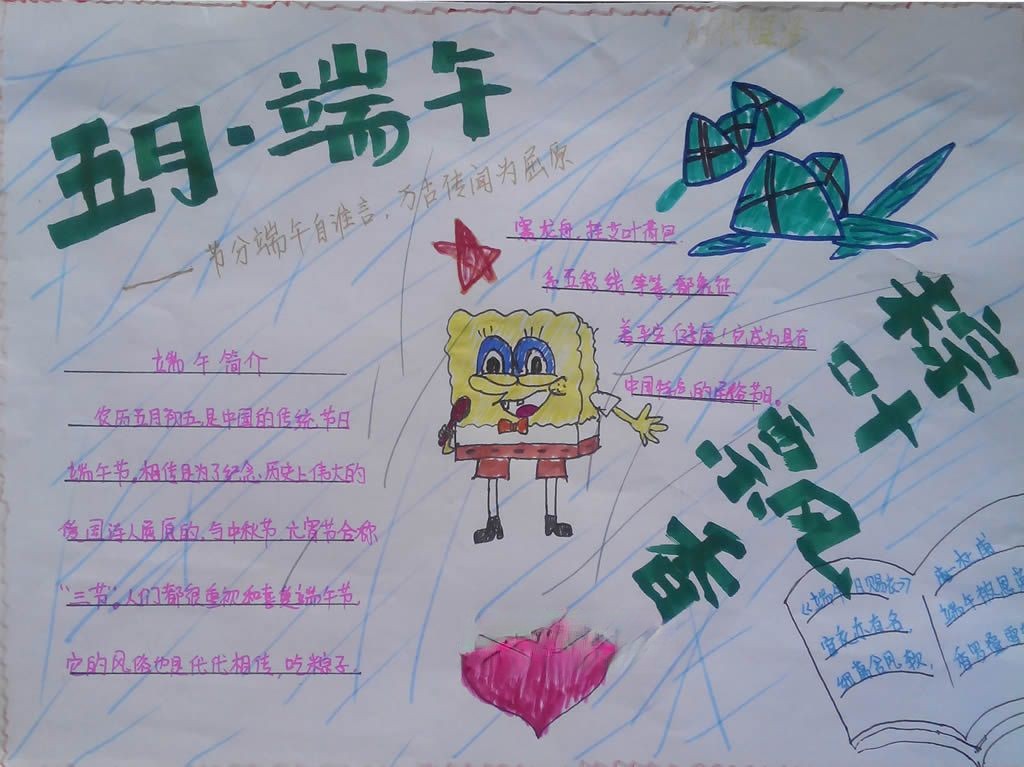 五月·端午
——节分端午自谁言,万古传闻为屈原
端午简介
农历五月初五,是中国的传统节日
端午节。相传是为了纪念历史上伟大的
爱国诗人屈原的,与中秋节、元宵节合称
“三节”。人们都很重视和喜爱端午节,
它的风俗也是代代相传,吃粽子、
赛龙舟,挂艾叶
系五彩线等等,都象征
着平安健康!它成为具有
中国特色的民俗节日。
粽叶飘香
《端午日赐衣》
宫衣亦有名,
细葛含风软,
唐·杜甫
端午被恩
香罗叠雪